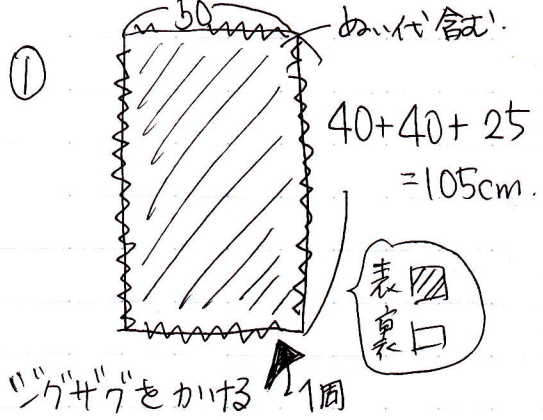 ①
50
ぬい代含む.
40+40+25
=105cm.
表
裏
ジグザグをかける 1周